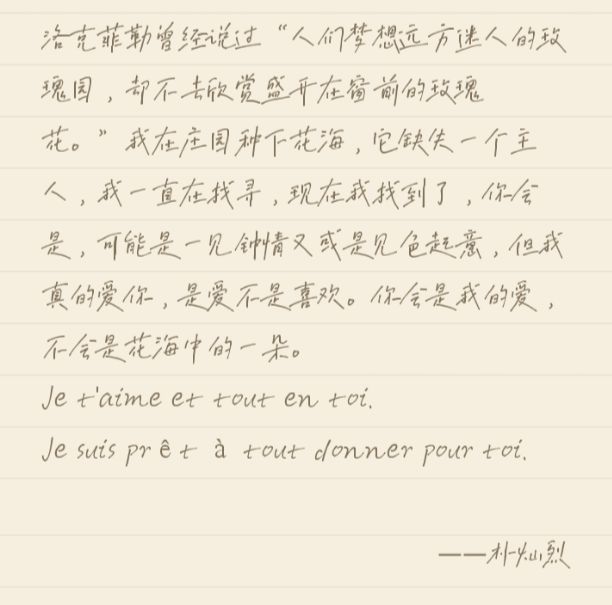 洛克菲勒曾经说过“人们梦想远方迷人的玫
瑰园，却不去欣赏盛开在窗前的玫瑰
花。”我在庄园种下花海，它缺失一个主
人，我一直在找寻，现在我找到了，你会
是，可能是一见钟情又或是见色起意，但我
真的爱你，是爱不是喜欢。你会是我的爱，
不会是花海中的一朵。
Je t'aime et tout en toi.
Je suis prêt à tout donner pour toi.
——朴灿烈